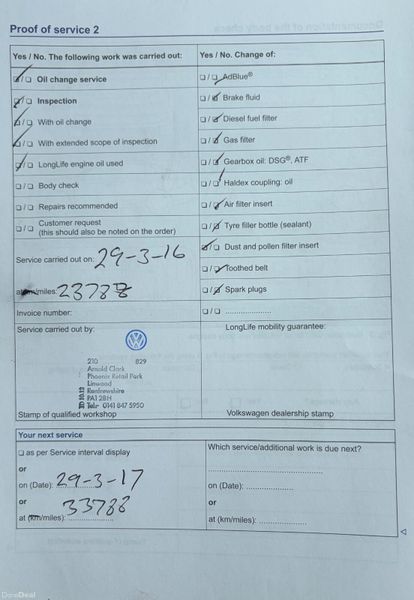 Proof of service 2
Yes / No. The following work was carried out:
Oil change service
Inspection
With oil change
With extended scope of inspection
LongLife engine oil used
Body check
Repairs recommended
Customer request
(this should also be noted on the order)
Service carried out on: 29-3-16
at km/miles: 23788
Invoice number:
Service carried out by:
210 829
Arnold Clark
Phoenix Retail Park
Linwood
Renfrewshire
PA1 2BH
Tel: 0141 847 5950
Stamp of qualified workshop
Yes / No. Change of:
AdBlue®
Brake fluid
Diesel fuel filter
Gas filter
Gearbox oil: DSG®, ATF
Haldex coupling: oil
Air filter insert
Tyre filler bottle (sealant)
Dust and pollen filter insert
Toothed belt
Spark plugs
LongLife mobility guarantee:
Volkswagen dealership stamp
Your next service
as per Service interval display
or
on (Date): 29-3-17
or
at (km/miles): 33788
Which service/additional work is due next?
on (Date):
or
at (km/miles):
DoneDeal